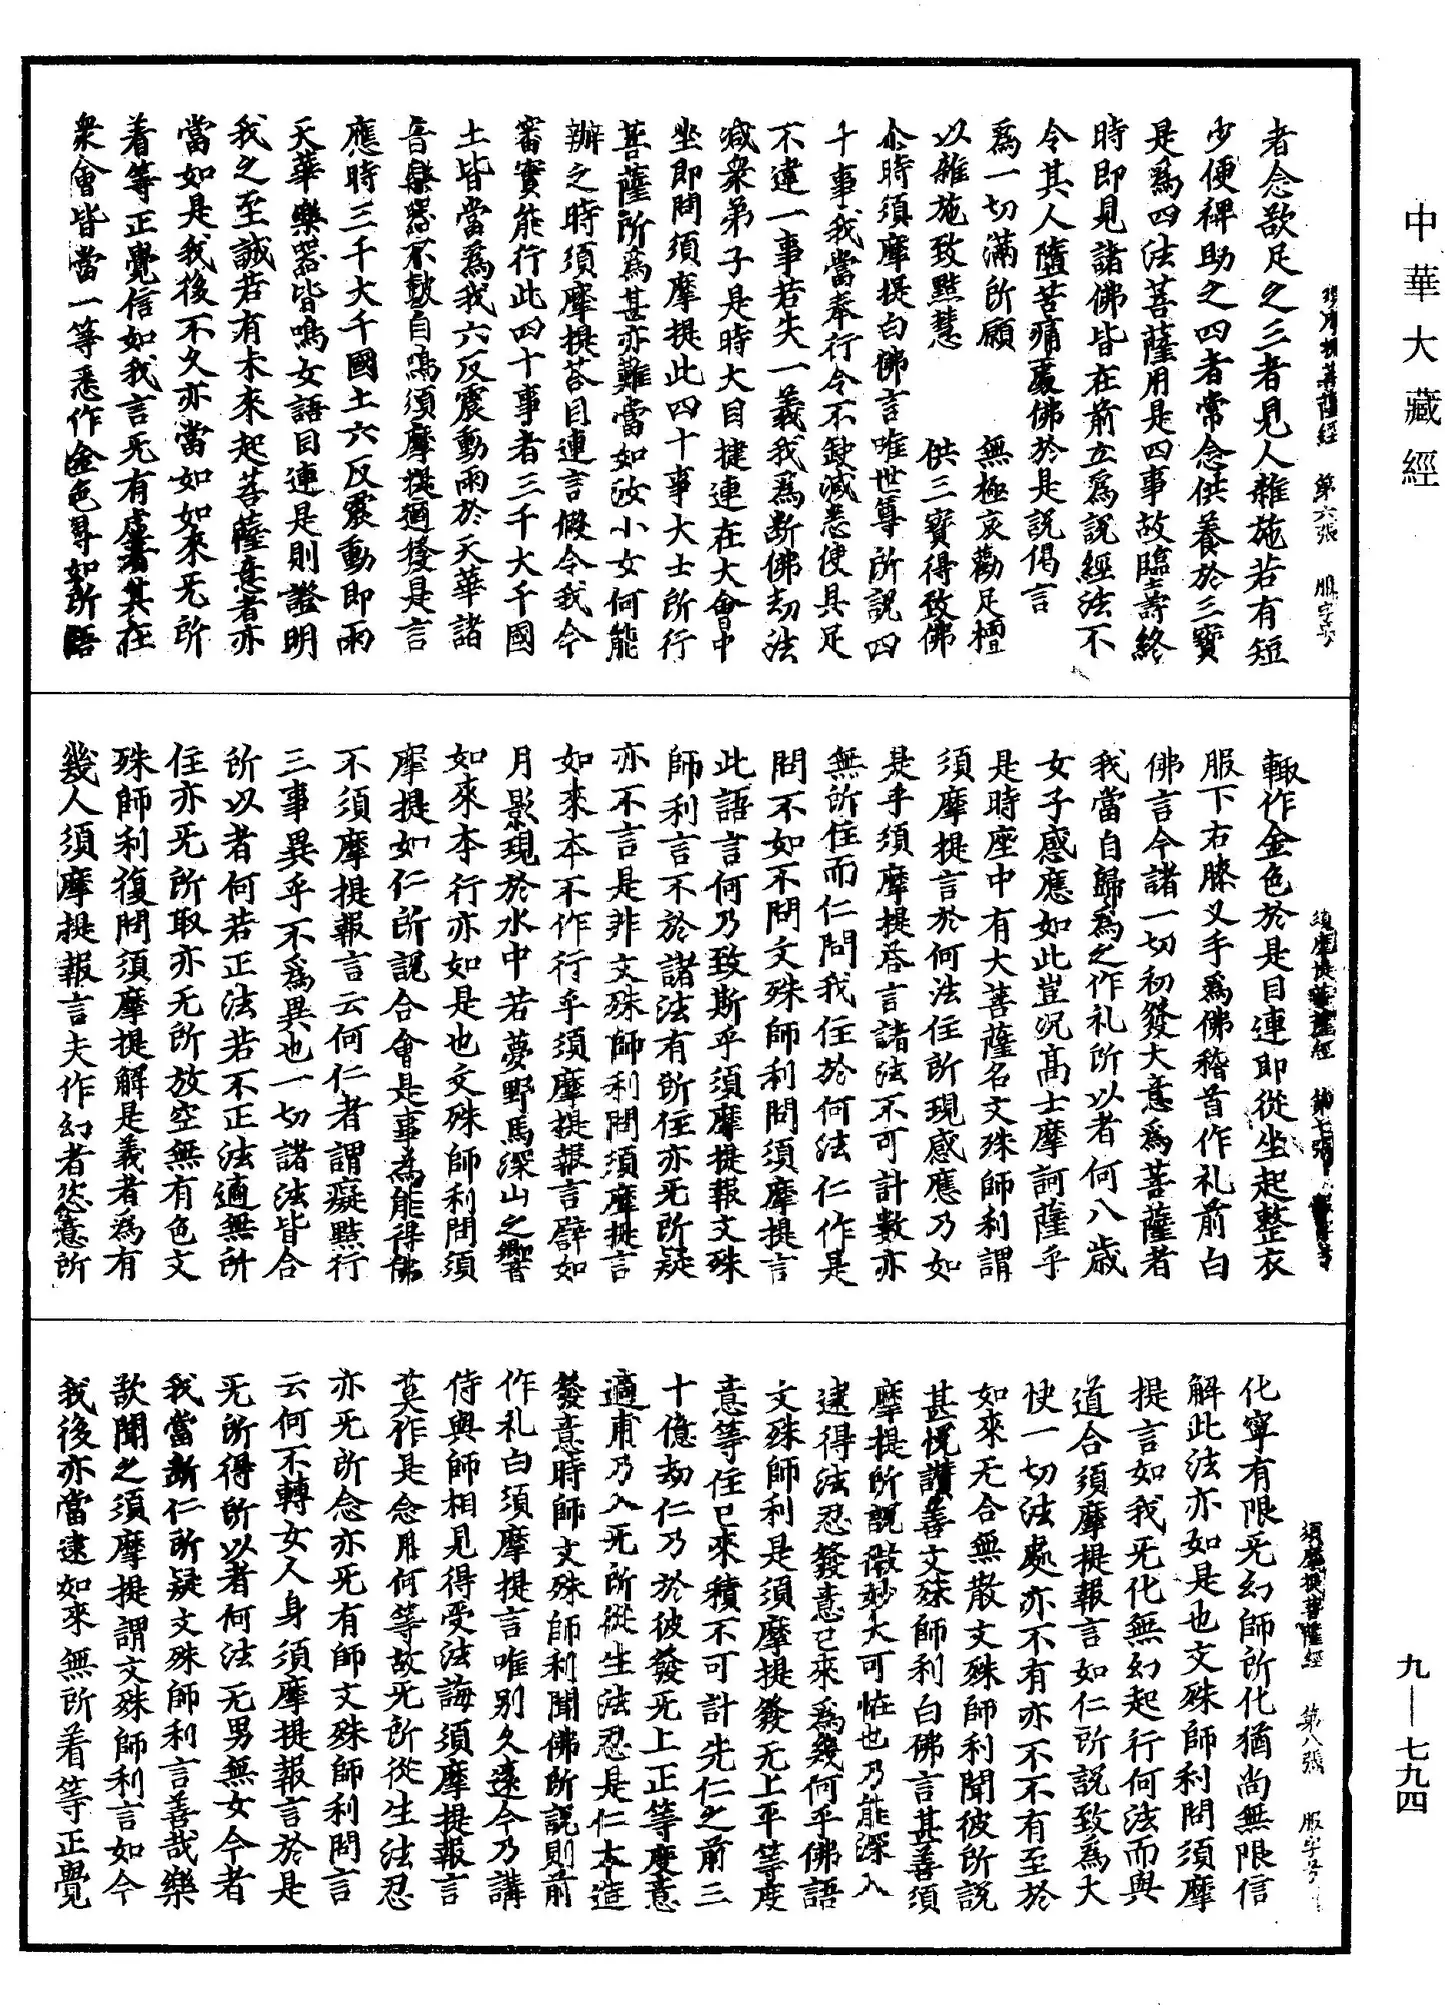 中華大藏經
須摩提菩薩經 第六張 服字号
者念欲足之三者見人雜施若有短
少便裨助之四者常念供養於三寶
是爲四法菩薩用是四事故臨壽終
時即見諸佛皆在前立爲說經法不
令其人墮苦痛處佛於是說偈言
爲一切滿所願 無極哀勸足檀
以雜施致黠慧 供三寶得致佛
尒時須摩提白佛言唯世尊所說四
十事我當奉行令不缺減悉使具足
不違一事若失一義我爲斷佛劫法
減衆弟子是時大目揵連在大會中
坐即問須摩提此四十事大士所行
菩薩所爲甚亦難當如汝小女何能
辦之時須摩提荅目連言假令我今
審實能行此四十事者三千大千國
土皆當爲我六反震動雨於天華諸
音樂器不鼓自鳴須摩提適發是言
應時三千大千國土六反震動即雨
天華樂器皆鳴女語目連是則證明
我之至誠若有未來起菩薩意者亦
當如是我後不久亦當如如來无所
着等正覺信如我言无有虛者其在
衆會皆當一等悉作金色尋如所語
須摩提菩薩經 第七張
輙作金色於是目連即從坐起整衣
服下右膝叉手爲佛稽首作礼前白
佛言今諸一切初發大意爲菩薩者
我當自歸爲之作礼所以者何八歲
女子感應如此豈況高士摩訶薩乎
是時座中有大菩薩名文殊師利謂
須摩提言於何法住所現感應乃如
是乎須摩提荅言諸法不可計數亦
無所住而仁問我住於何法仁作是
問不如不問文殊師利問須摩提言
此語言何乃致斯乎須摩提報文殊
師利言不於諸法有所住亦无所疑
亦不言是非文殊師利問須摩提言
如來本不作行乎須摩提報言譬如
月影現於水中若夢野馬深山之響
如來本行亦如是也文殊師利問須
摩提如仁所說合會是事爲能得佛
不須摩提報言云何仁者謂癡黠行
三事異乎不爲異也一切諸法皆合
所以者何若正法若不正法適無所
住亦无所取亦无所放空無有色文
殊師利復問須摩提解是義者爲有
幾人須摩提報言夫作幻者恣意所
須摩提菩薩經 第八張 服字号
化寧有限无幻師所化猶尚無限信
解此法亦如是也文殊師利問須摩
提言如我无化無幻起行何法而與
道合須摩提報言如仁所說致爲大
快一切法處亦不有亦不不有至於
如來无合無散文殊師利聞彼所說
甚悅讚善文殊師利白佛言甚善須
摩提所說微妙大可恠也乃能深入
逮得法忍發意已來爲幾何乎佛語
文殊師利是須摩提發无上平等度
意等住已來積不可計先仁之前三
十億劫仁乃於彼發无上正等度意
適甫乃入无所從生法忍是仁本造
發意時師文殊師利聞佛所說則前
作礼白須摩提言唯別久遠今乃講
侍與師相見得受法誨須摩提報言
莫作是念用何等故无所從生法忍
亦无所念亦无有師文殊師利問言
云何不轉女人身須摩提報言於是
无所得所以者何法无男無女今者
我當斷仁所疑文殊師利言善哉樂
欲聞之須摩提謂文殊師利言如今
我後亦當逮如來無所着等正覺
九—七九四